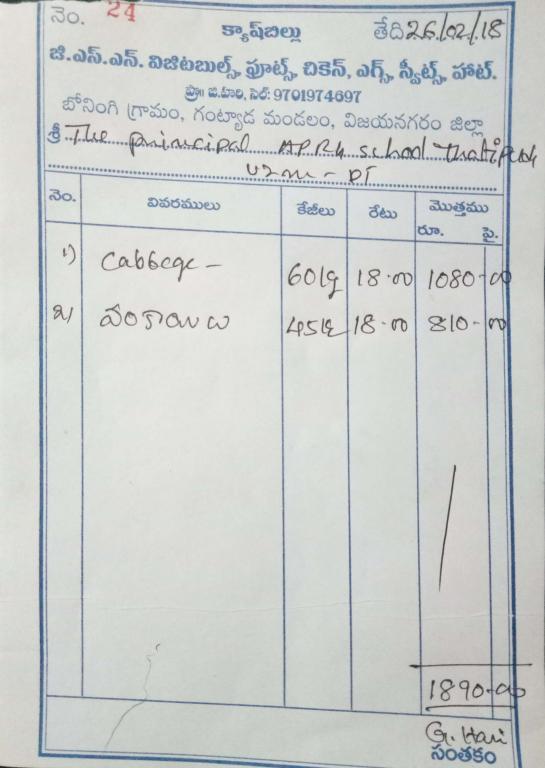 నెం. 24 క్యాష్‌బిల్లు తేది 26/02/18
జి.ఎస్.ఎన్. విజిటబుల్స్, ఫ్రూట్స్, చికెన్, ఎగ్స్, స్వీట్స్, హాట్.
ప్రొ॥ జి.హరి, సెల్: 9701974697
బోనింగి గ్రామం, గంట్యాడ మండలం, విజయనగరం జిల్లా
శ్రీ The principal APRH school Thatipudi
vzm - DT
నెం. వివరములు కేజీలు రేటు మొత్తము
రూ. పై.
1) cabbege - 60kg 18.00 1080-00
2) వంకాయలు 45kg 18.00 810-00
1890-00
G. Hari
సంతకం